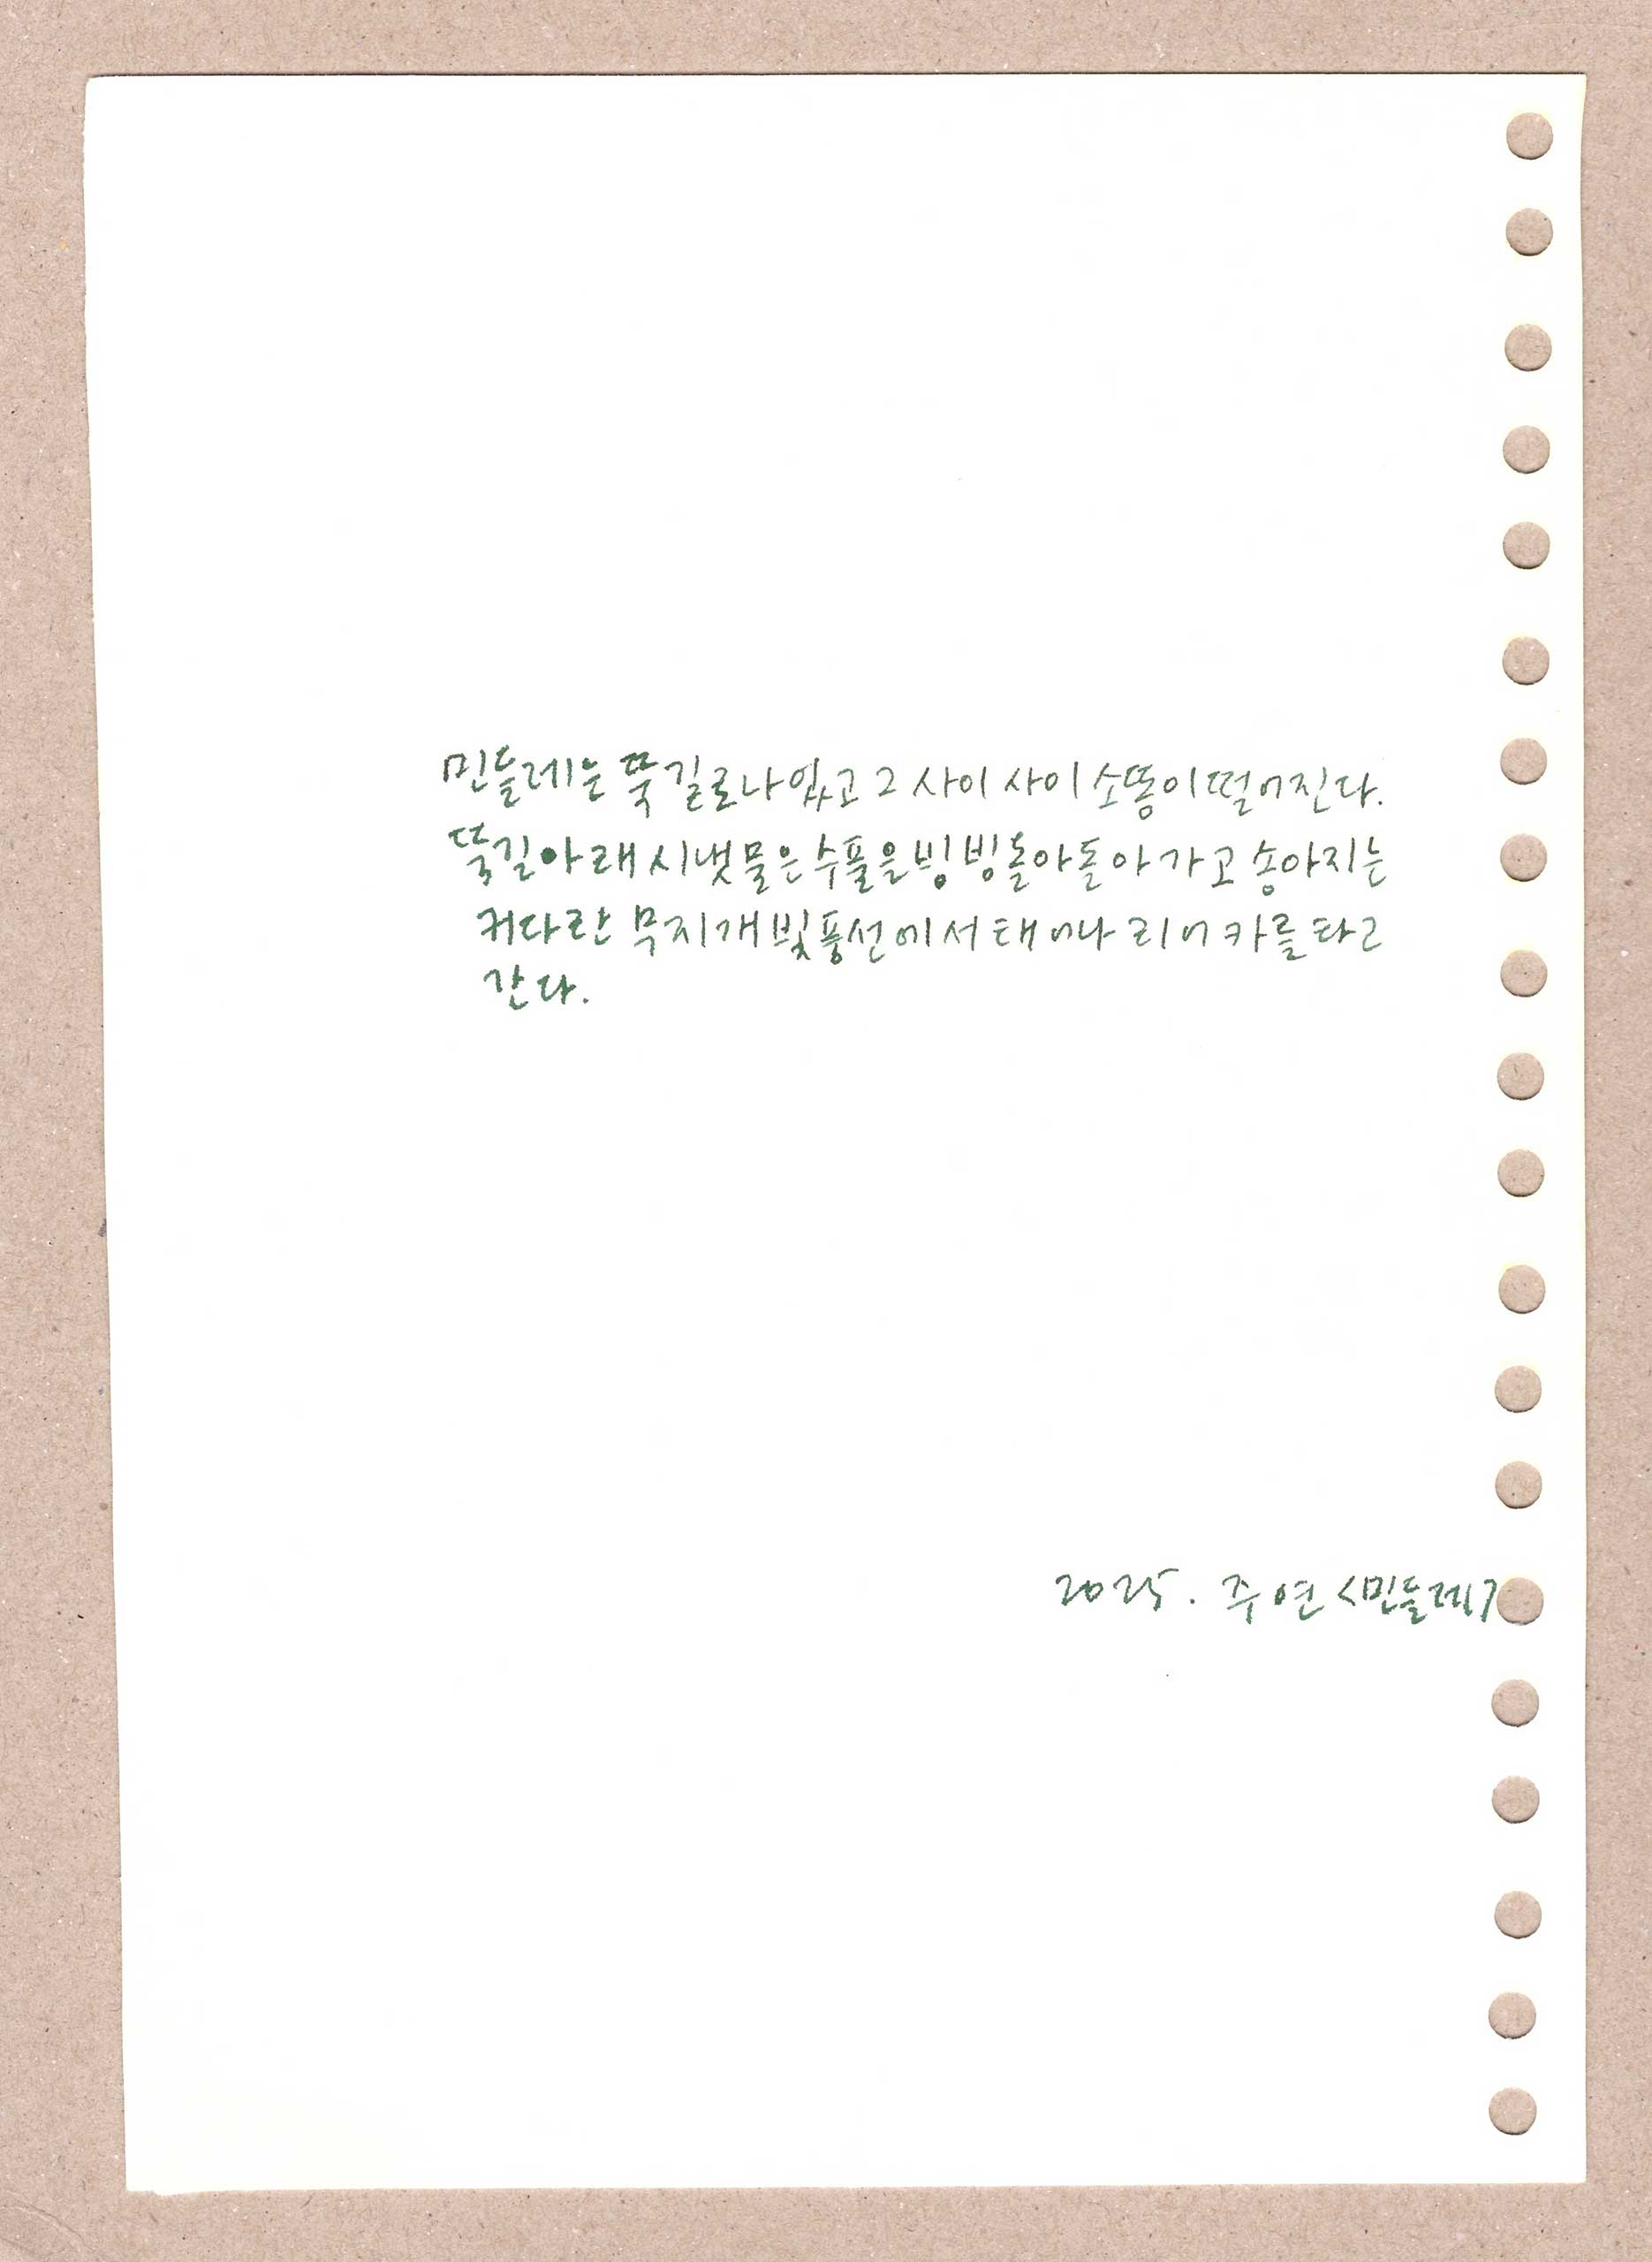 민들레는 뚝길로나있고 그 사이사이 소똥이떨어진다.
뚝길아래 시냇물은 수풀을 빙빙돌아돌아가고 송아지는
커다란 무지개빛풍선에서 태어나 리어카를 타고
간다.
2025. 주연 <민들레>